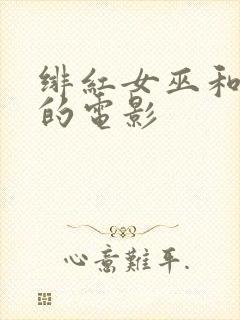 绯紅女巫和
的電影
心意難平.